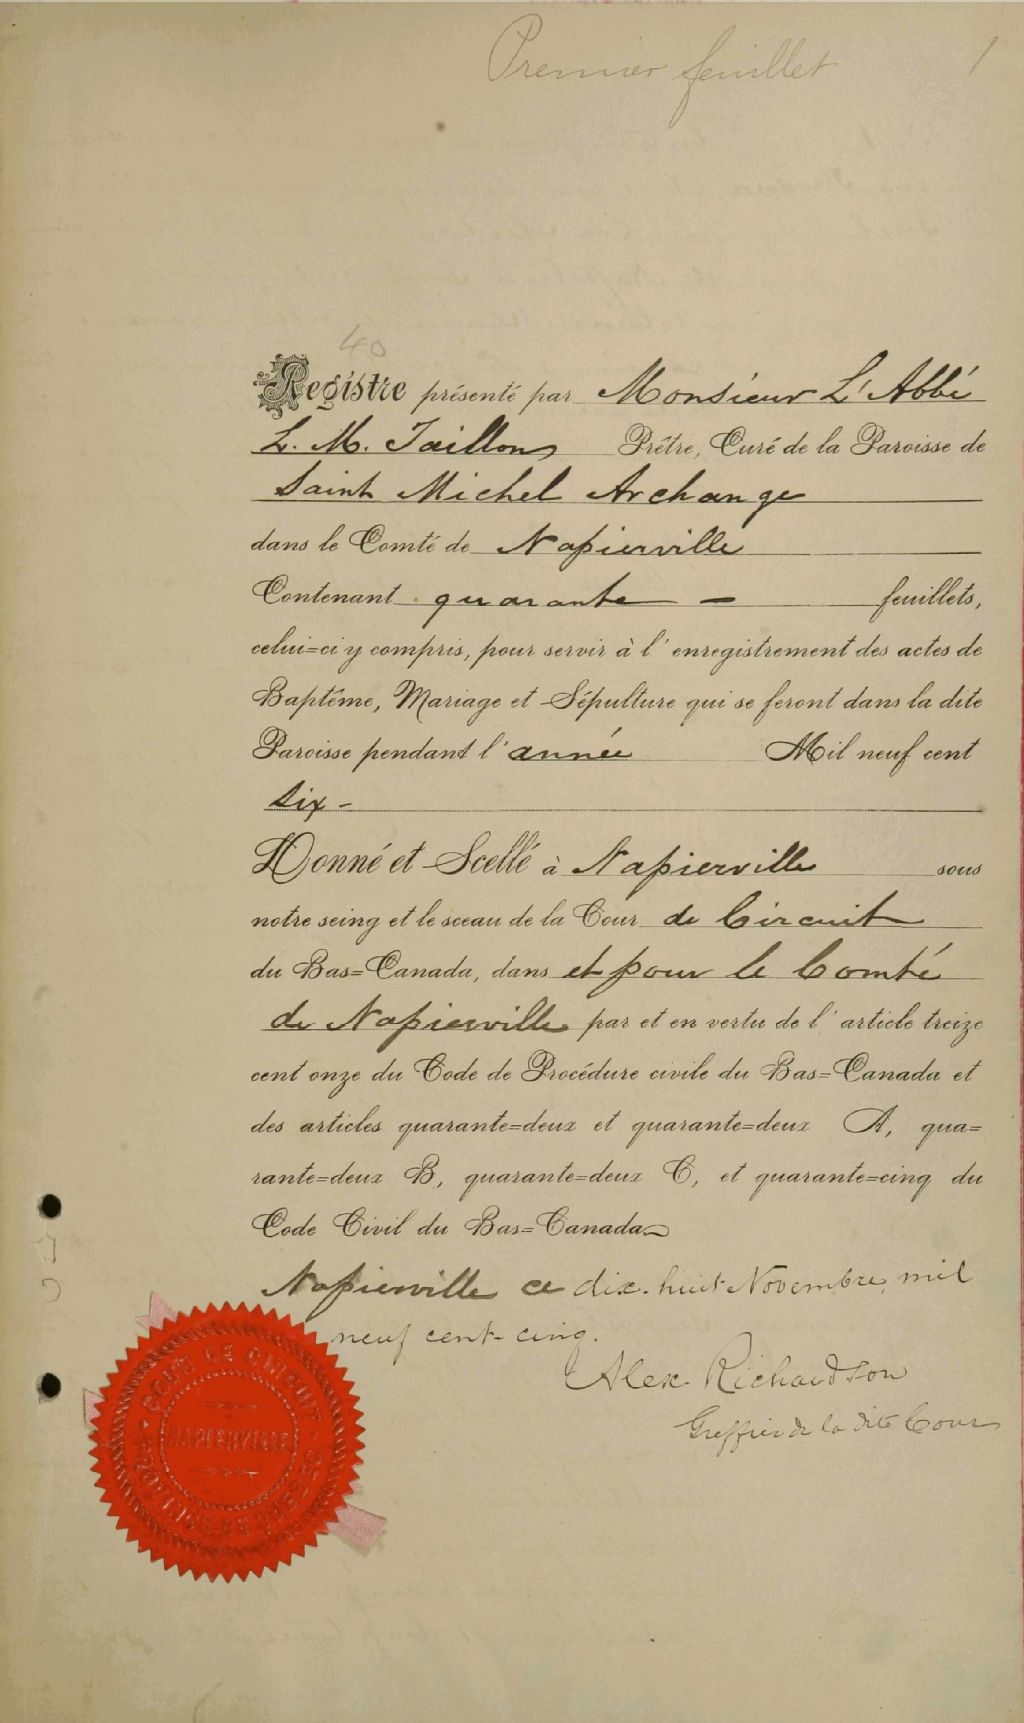 Premier feuillet 1
40
Registre présenté par Monsieur L'Abbé
L. M. Taillon Prêtre, Curé de la Paroisse de
Saint Michel Archange
dans le Comté de Napierville
Contenant quarante — feuillets,
celui=ci y compris, pour servir à l'enregistrement des actes de
Baptême, Mariage et Sépulture qui se feront dans la dite
Paroisse pendant l'année Mil neuf cent
six -
Donné et Scellé à Napierville sous
notre seing et le sceau de la Cour de Circuit
du Bas=Canada, dans et pour le Comté
de Napierville par et en vertu de l'article treize
cent onze du Code de Procédure civile du Bas=Canada et
des articles quarante=deux et quarante=deux A, qua=
rante=deux B, quarante=deux C, et quarante=cinq du
Code Civil du Bas=Canada
Napierville ce dix-huit Novembre, mil
neuf cent-cinq.
Alex. Richardson
Greffier de la dite Cour
COUR DE CIRCUIT
NAPIERVILLE
PROVINCE DE QUEBEC